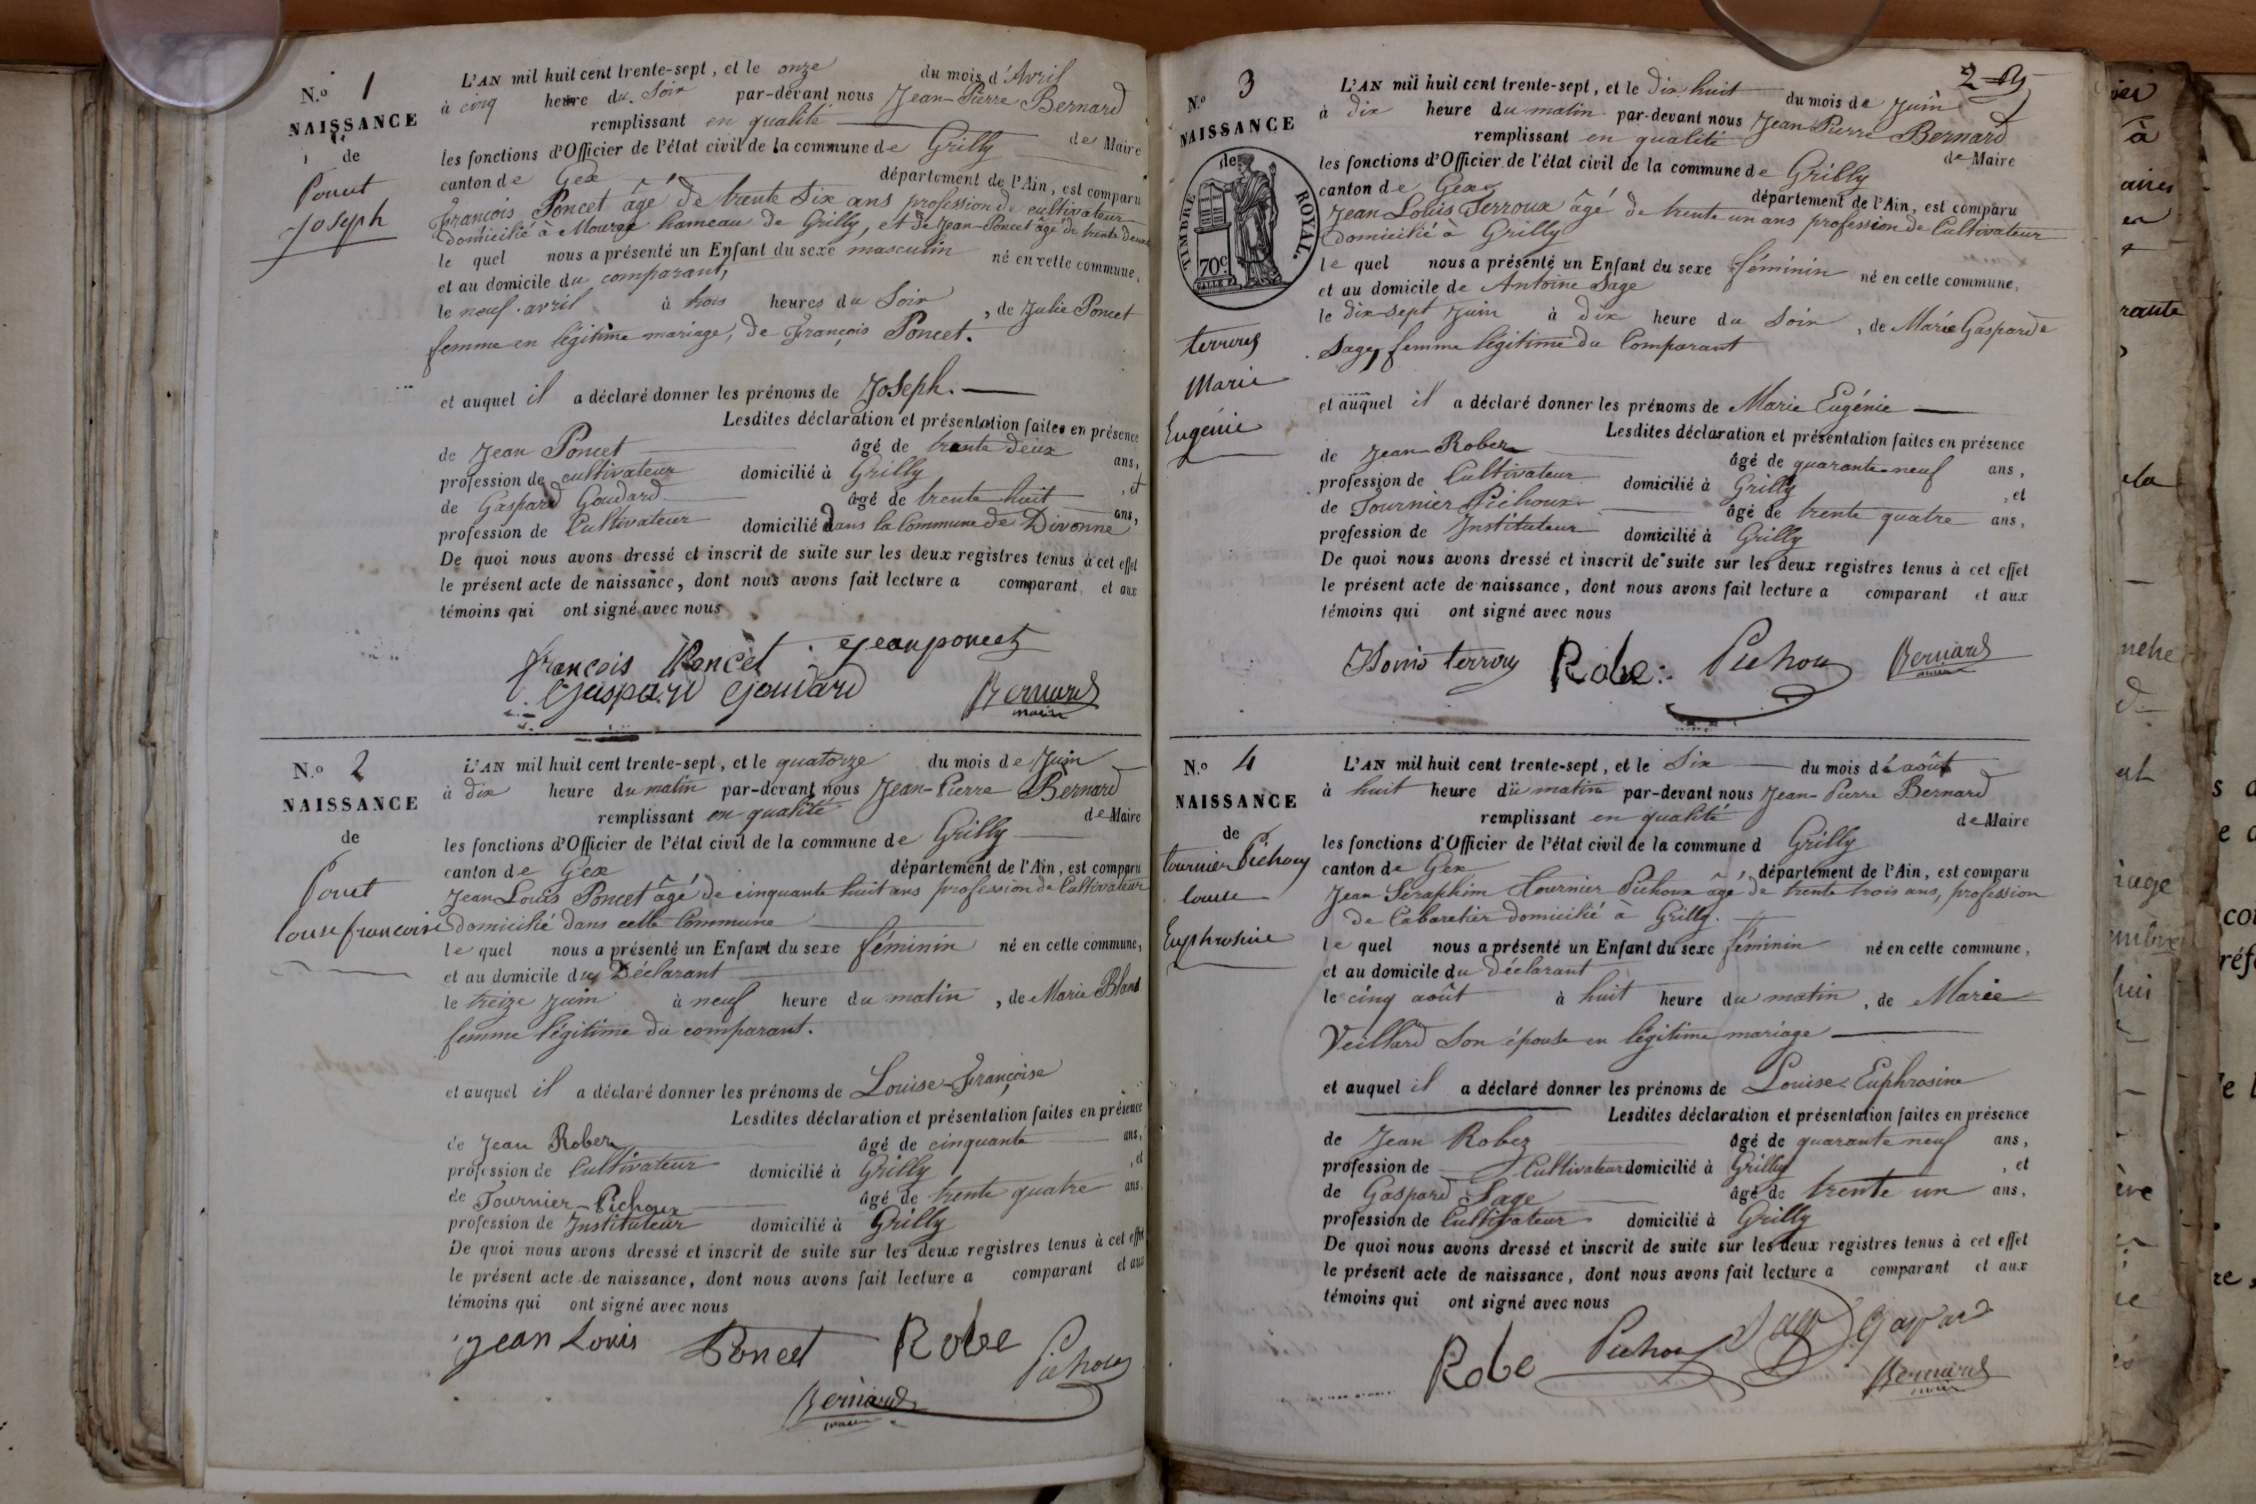 N.o 1
NAISSANCE
de
Poncet
Joseph
L'AN mil huit cent trente-sept, et le onze du mois d'Avril
à cinq heure du Soir par-devant nous Jean-Pierre Bernard
remplissant en qualité de Maire
les fonctions d'Officier de l'état civil de la commune de Grilly
canton de Gex département de l'Ain, est comparu
François Poncet âgé de trente Six ans profession de cultivateur
domicilié à Mourex hameau de Grilly, et de Jean-Poncet âgé de trente deux
le quel nous a présenté un Enfant du sexe masculin né en cette commune,
et au domicile du comparant,
le neuf avril à trois heures du Soir, de Julie Poncet
femme en légitime mariage, de François Poncet.
et auquel il a déclaré donner les prénoms de Joseph.
Lesdites déclaration et présentation faites en présence
de Jean Poncet âgé de trente deux ans,
profession de cultivateur domicilié à Grilly, et
de Gaspard Goudard âgé de trente huit ans,
profession de Cultivateur domicilié dans la Commune de Divonne
De quoi nous avons dressé et inscrit de suite sur les deux registres tenus à cet effet
le présent acte de naissance, dont nous avons fait lecture a comparant et aux
témoins qui ont signé avec nous
françois Poncet jean poncet
Gaspard Goudard Bernard
maire
N.o 2
NAISSANCE
de
Poncet
louise francoise
L'AN mil huit cent trente-sept, et le quatorze du mois de Juin
à dix heure du matin par-devant nous Jean-Pierre Bernard
remplissant en qualité de Maire
les fonctions d'Officier de l'état civil de la commune de Grilly
canton de Gex département de l'Ain, est comparu
Jean Louis Poncet âgé de cinquante huit ans profession de Cultivateur
domicilié dans cette Commune
le quel nous a présenté un Enfant du sexe féminin né en cette commune,
et au domicile du Déclarant
le treize juin à neuf heure du matin, de Marie Blanc
femme légitime du comparant.
et auquel il a déclaré donner les prénoms de Louise-Françoise
Lesdites déclaration et présentation faites en présence
de Jean Robez âgé de cinquante ans,
profession de Cultivateur domicilié à Grilly, et
de Tournier-Pichoux âgé de trente quatre ans.
profession de Instituteur domicilié à Grilly
De quoi nous avons dressé et inscrit de suite sur les deux registres tenus à cet effet
le présent acte de naissance, dont nous avons fait lecture a comparant et aux
témoins qui ont signé avec nous
Jean Louis Poncet Robe Pichoux
Bernard
maire
2
N.o 3
NAISSANCE
de
TIMBRE ROYAL.
70c
terroux
Marie
Eugénie
L'AN mil huit cent trente-sept, et le Dix huit du mois de Juin
à dix heure du matin par-devant nous Jean Pierre Bernard
remplissant en qualité de Maire
les fonctions d'Officier de l'état civil de la commune de Grilly
canton de Gex département de l'Ain, est comparu
Jean Louis Terroux âgé de trente un ans profession de Cultivateur
domicilié à Grilly
le quel nous a présenté un Enfant du sexe féminin né en cette commune,
et au domicile de Antoine Sage
le dix sept Juin à dix heure du Soir, de Marie Gasparde
Sage, femme légitime du Comparant
et auquel il a déclaré donner les prénoms de Marie Eugénie
Lesdites déclaration et présentation faites en présence
de Jean Robez âgé de quarante neuf ans,
profession de Cultivateur domicilié à Grilly, et
de Tournier Pichoux âgé de trente quatre ans,
profession de Instituteur domicilié à Grilly
De quoi nous avons dressé et inscrit de suite sur les deux registres tenus à cet effet
le présent acte de naissance, dont nous avons fait lecture a comparant et aux
témoins qui ont signé avec nous
terroux Robe Pichoux Bernard
maire
N.o 4
NAISSANCE
de
tournier Pichoux
louise
Euphrosine
L'AN mil huit cent trente-sept, et le Six du mois d'août
à huit heure du matin par-devant nous Jean-Pierre Bernard
remplissant en qualité de Maire
les fonctions d'Officier de l'état civil de la commune d Grilly
canton de Gex département de l'Ain, est comparu
Jean Séraphim Tournier Pichoux âgé de trente trois ans, profession
de Cabaretier domicilié à Grilly.
le quel nous a présenté un Enfant du sexe féminin né en cette commune,
et au domicile du Déclarant
le cinq août à huit heure du matin, de Marie
Veillard Son épouse en légitime mariage
et auquel il a déclaré donner les prénoms de Louise Euphrosine
Lesdites déclaration et présentation faites en présence
de Jean Robez âgé de quarante neuf ans,
profession de Cultivateur domicilié à Grilly, et
de Gaspard Sage âgé de trente un ans,
profession de Cultivateur domicilié à Grilly
De quoi nous avons dressé et inscrit de suite sur les deux registres tenus à cet effet
le présent acte de naissance, dont nous avons fait lecture a comparant et aux
témoins qui ont signé avec nous
Robe Pichoux Sage Gaspard
Bernard
maire